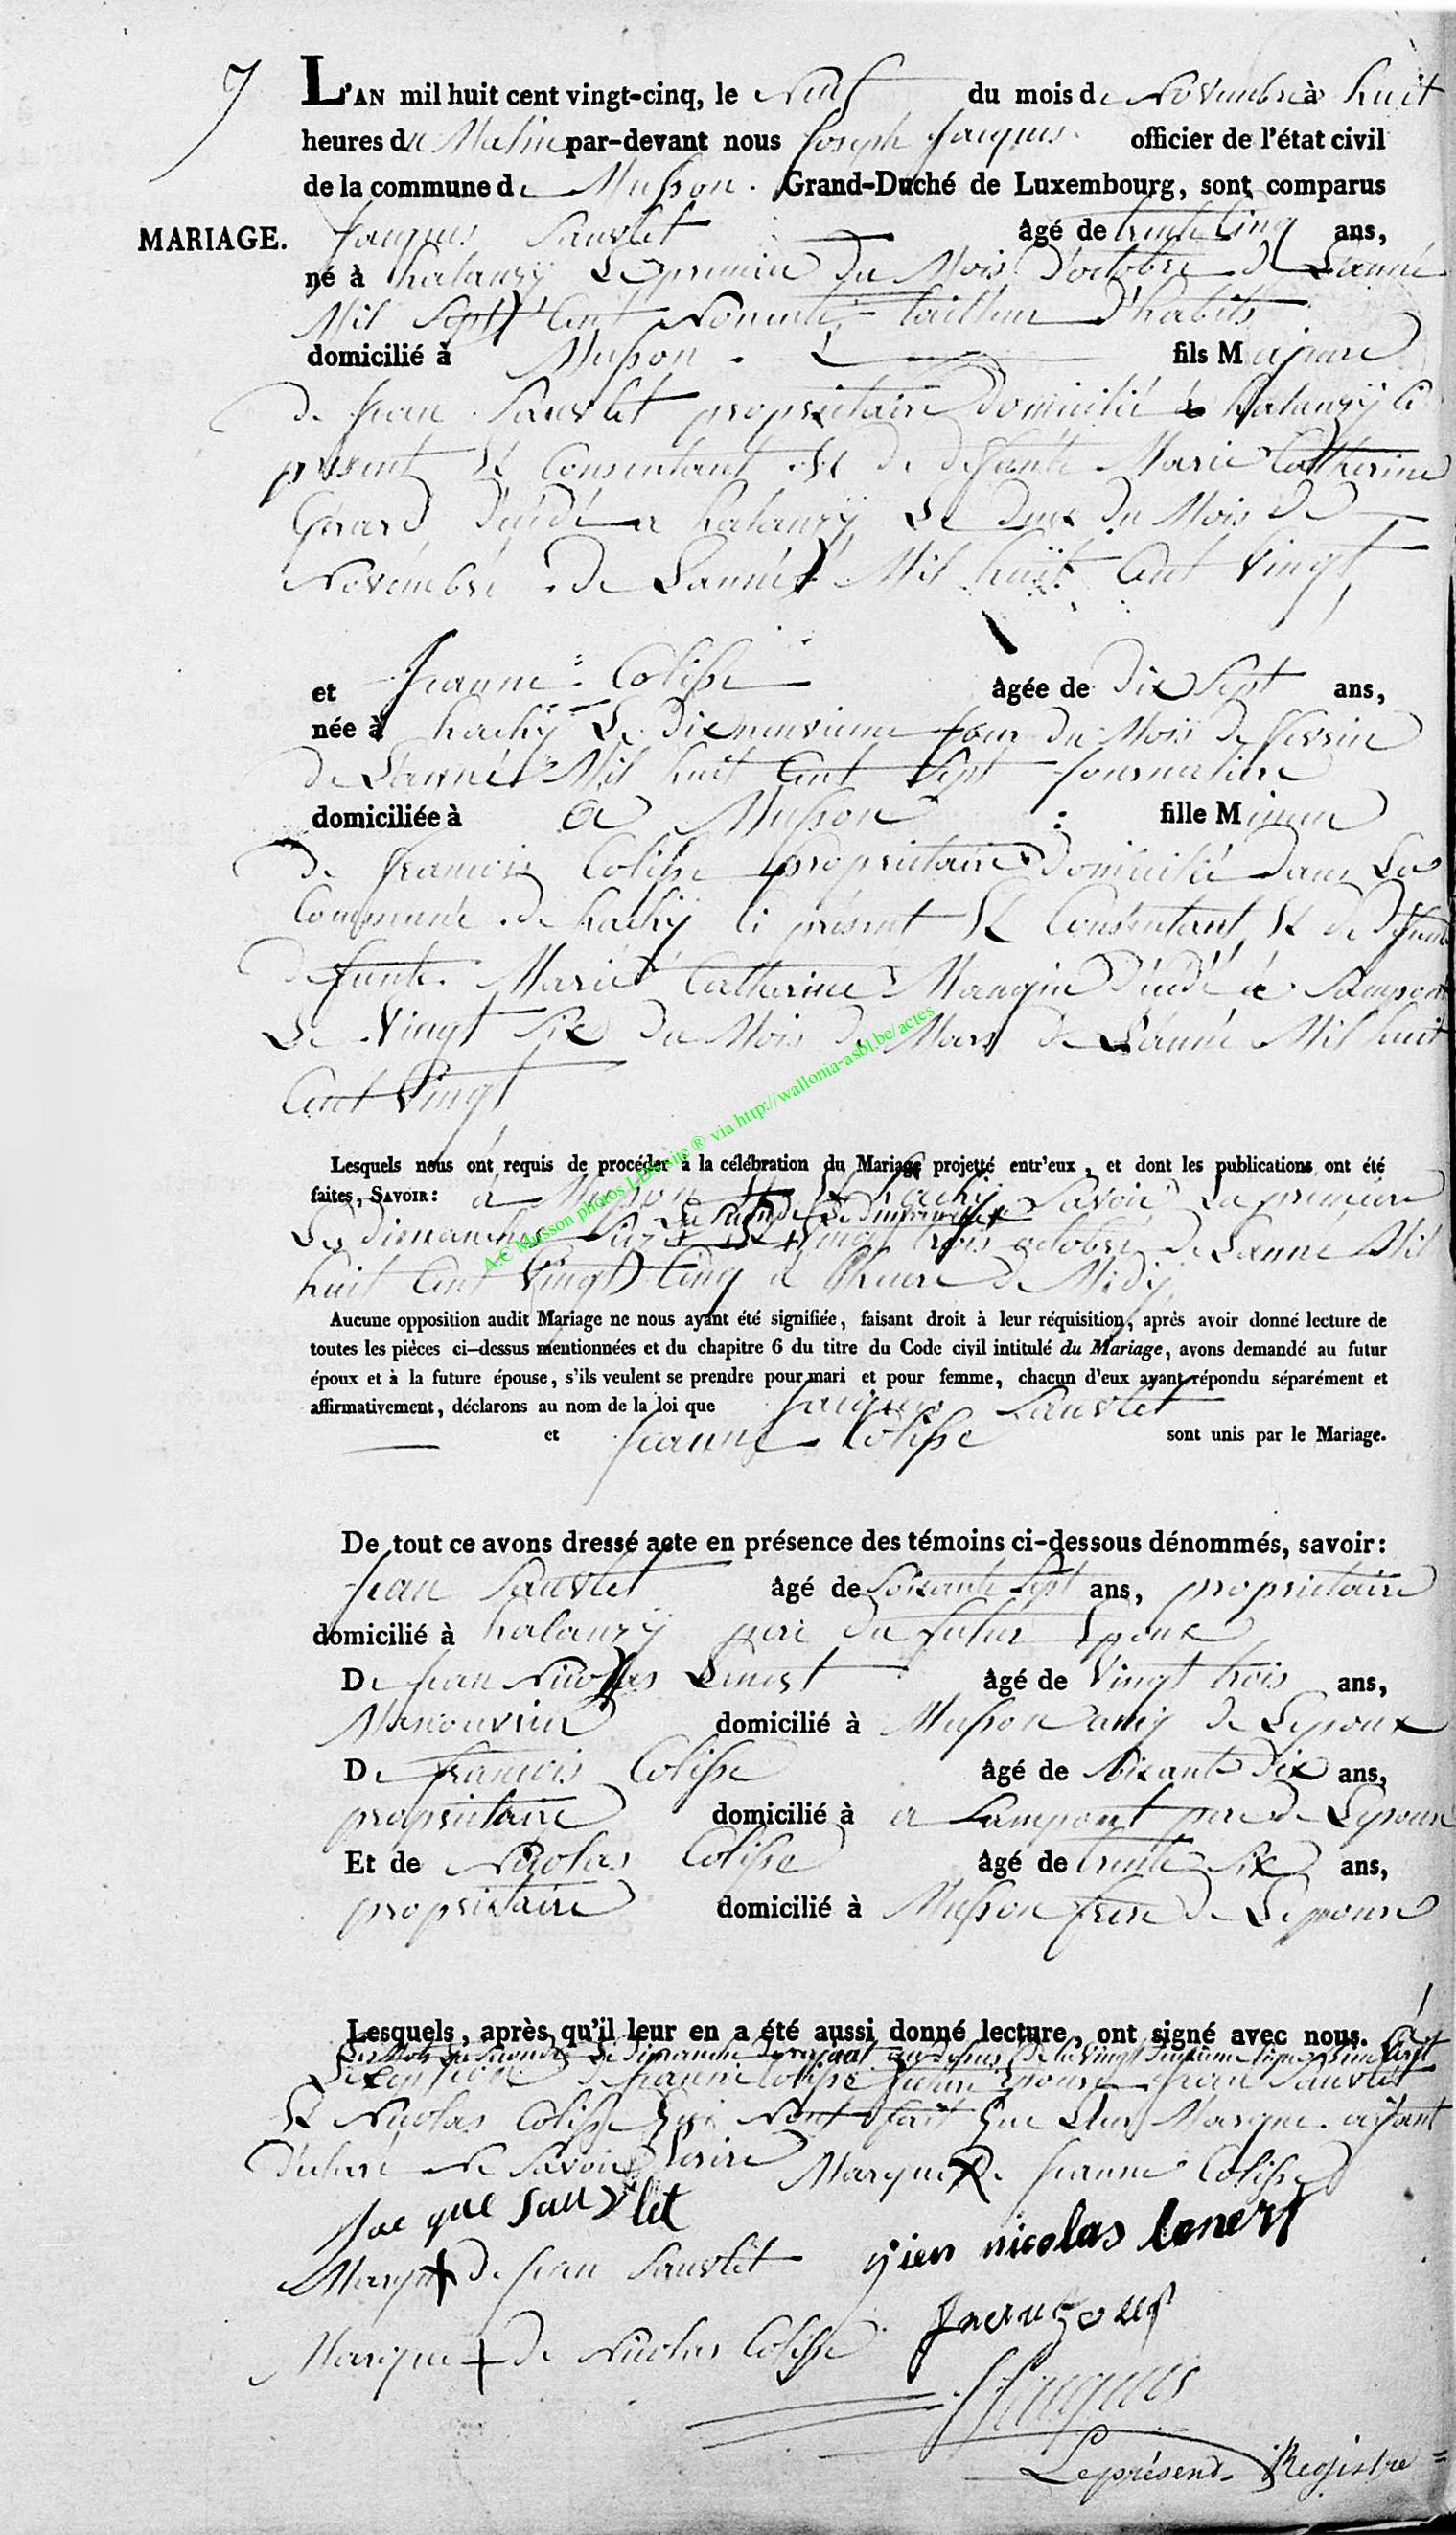 7 L'AN mil huit cent vingt-cinq, le Neuf du mois de Novembre à huit
heures du Matin par-devant nous Joseph Jacques officier de l'état civil
de la commune de Musson. Grand-Duché de Luxembourg, sont comparus
MARIAGE. Jacques Sauvlet âgé de trente Cinq ans,
né à halanzÿ Le premier du Mois D'octobre de L'année
Mil Sept Cent Nonente, tailleur D'habits
domicilié à Musson. fils Majeur
de Jean Sauvlet propriétaire Domicilié à halanzÿ ci
présent Et Consentant Et de défunte Marie Catherine
Gérard Décédé a halanzÿ Le Deux du Mois De
Novembre De L'année Mil huit Cent Vingt,
et Jeanne Colisse âgée de Dix Sept ans,
née à hachÿ Le Dixneuvieme Jour du Mois de fevrier
de L'année Mil huit Cent Sept Journaliere
domiciliée à a Musson : fille Mineur
De francois Colisse propriétaire Domicilié Dans La
Commune de hachÿ ci présent Et Consentant, Et de Défunte
Defunte Marie Catherine Mangin Décédé à Sampont
Le Vingt Six Du Mois de Mars de L'année Mil huit
Cent Vingt
Lesquels nous ont requis de procéder à la célébration du Mariage projetté entr'eux, et dont les publications ont été
faites, SAVOIR: à Musson Et hachÿ Savoir La premiere
La Seconde Le Dimanche
Le Dimanche Seize Et Vingt trois octobre de L'année Mil
huit Cent Vingt Cinq à l'heure de Midÿ
Aucune opposition audit Mariage ne nous ayant été signifiée, faisant droit à leur réquisition, après avoir donné lecture de
toutes les pièces ci-dessus mentionnées et du chapitre 6 du titre du Code civil intitulé du Mariage, avons demandé au futur
époux et à la future épouse, s'ils veulent se prendre pour mari et pour femme, chacun d'eux ayant répondu séparément et
affirmativement, déclarons au nom de la loi que Jacques Sauvlet
et Jeanne Colisse sont unis par le Mariage.
De tout ce avons dressé acte en présence des témoins ci-dessous dénommés, savoir:
Jean Sauvlet âgé de Soixante Sept ans, propriétaire
domicilié à halanzÿ pere du futur Epoux
De Jean Nicolas Lenert âgé de Vingt trois ans,
Manouvrier domicilié à Musson amÿ de Lepoux
De francois Colisse âgé de Soixante Dix ans,
propriétaire domicilié à a Sampont pere de Lepouse
Et de Nicolas Colisse âgé de trente Six ans,
propriétaire domicilié à Musson frere de Lepouse
Lesquels, après qu'il leur en a été aussi donné lecture, ont signé avec nous.
Les Mots La Seconde Le Dimanche au dessus de la vingt Deuxieme ligne
de Jeanne Colisse future Epouse Jean Sauvlet
Et Nicolas Colisse qui Nont fait que Leur Marque ayant
Déclaré Ne Savoir Ecrire Marque X De Jeanne Colisse
Jacque Sauvlet
jien nicolas lenert
Marque + De Jean Sauvlet
Marque + De Nicolas Colisse
J Jacques
Le présend Registre =
A.C Musson photos LDS site ® via http://wallonia-asbl.be/actes